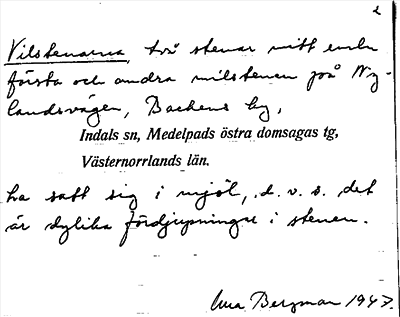 2
Vilstenarna, två stenar mitt emellan
första och andra milstenen på Ny-
landsvägen, Backens by,
Indals sn, Medelpads östra domsagas tg,
Västernorrlands län.
ha satt sig i mjöl, d. v. s. det
är dylika fördjupningar i stenen.
Bergman 1947.